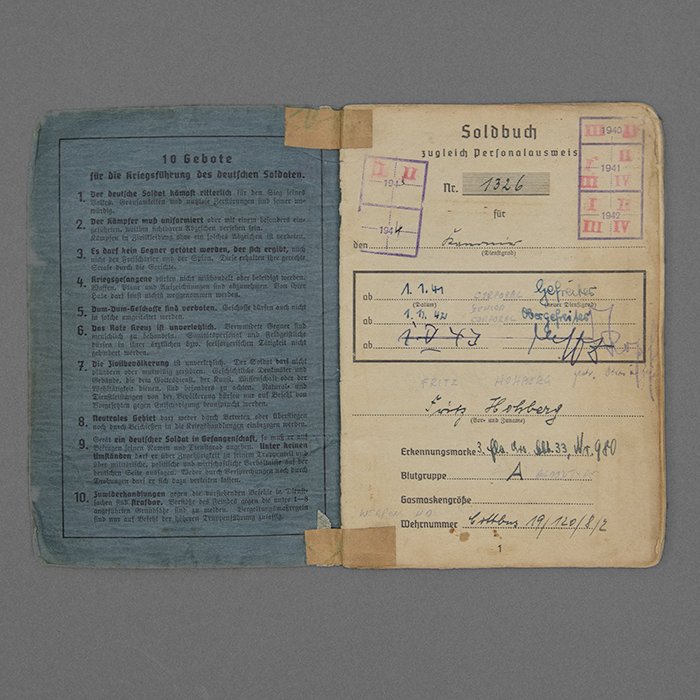 10 Gebote
für die Kriegsführung des deutschen Soldaten.
1. Der deutsche Soldat kämpft ritterlich für den Sieg seines
Volkes. Grausamkeiten und nutzlose Zerstörungen sind seiner un-
würdig.
2. Der Kämpfer muß uniformiert oder mit einem besonders ein-
geführten, weithin sichtbaren Abzeichen versehen sein.
Kämpfen in Zivilkleidung ohne ein solches Abzeichen ist verboten.
3. Es darf kein Gegner getötet werden, der sich ergibt, auch
nicht der Freischärler und der Spion. Diese erhalten ihre gerechte
Strafe durch die Gerichte.
4. Kriegsgefangene dürfen nicht mißhandelt oder beleidigt werden.
Waffen, Pläne und Aufzeichnungen sind abzunehmen. Von ihrer
Habe darf sonst nichts weggenommen werden.
5. Dum-Dum-Geschosse sind verboten. Geschosse dürfen auch nicht
in solche umgestaltet werden.
6. Das Rote Kreuz ist unverletzlich. Verwundete Gegner sind
menschlich zu behandeln. Sanitätspersonal und Feldgeistliche
dürfen in ihrer ärztlichen bzw. seelsorgerischen Tätigkeit nicht
gehindert werden.
7. Die Zivilbevölkerung ist unverletzlich. Der Soldat darf nicht
plündern oder mutwillig zerstören. Geschichtliche Denkmäler und
Gebäude, die dem Gottesdienst, der Kunst, Wissenschaft oder der
Wohltätigkeit dienen, sind besonders zu achten. Natural- und
Dienstleistungen von der Bevölkerung dürfen nur auf Befehl von
Vorgesetzten gegen Entschädigung beansprucht werden.
8. Neutrales Gebiet darf weder durch Betreten oder Überfliegen
noch durch Beschießen in die Kriegshandlungen einbezogen werden.
9. Gerät ein deutscher Soldat in Gefangenschaft, so muß er auf
Befragen seinen Namen und Dienstgrad angeben. Unter keinen
Umständen darf er über Zugehörigkeit zu seinem Truppenteil und
über militärische, politische und wirtschaftliche Verhältnisse auf der
deutschen Seite aussagen. Weder durch Versprechungen noch durch
Drohungen darf er sich dazu verleiten lassen.
10. Zuwiderhandlungen gegen die vorstehenden Befehle in Dienst-
sachen sind strafbar. Verstöße des Feindes gegen die unter 1–8
angeführten Grundsätze sind zu melden. Vergeltungsmaßregeln
sind nur auf Befehl der höheren Truppenführung zulässig.
Soldbuch
zugleich Personalausweis
Nr. 1326
für
den Kanonier
(Dienstgrad)
III 1940
II
1941
III IV
1942
III IV
II
194
1944
ab 1.1.41 CORPORAL Gefreiter
(Datum) (neuer Dienstgrad)
ab 1.11.42 SENIOR CORPORAL Obergefreiter
ab
FRITZ HOHBERG
Fritz Hohberg
(Vor- und Zuname)
Erkennungsmarke 3. 33, Nr. 900
Blutgruppe A
Gasmaskengröße
WEAPON NO.
Wehrnummer Cottbus 19/120/8/2
1